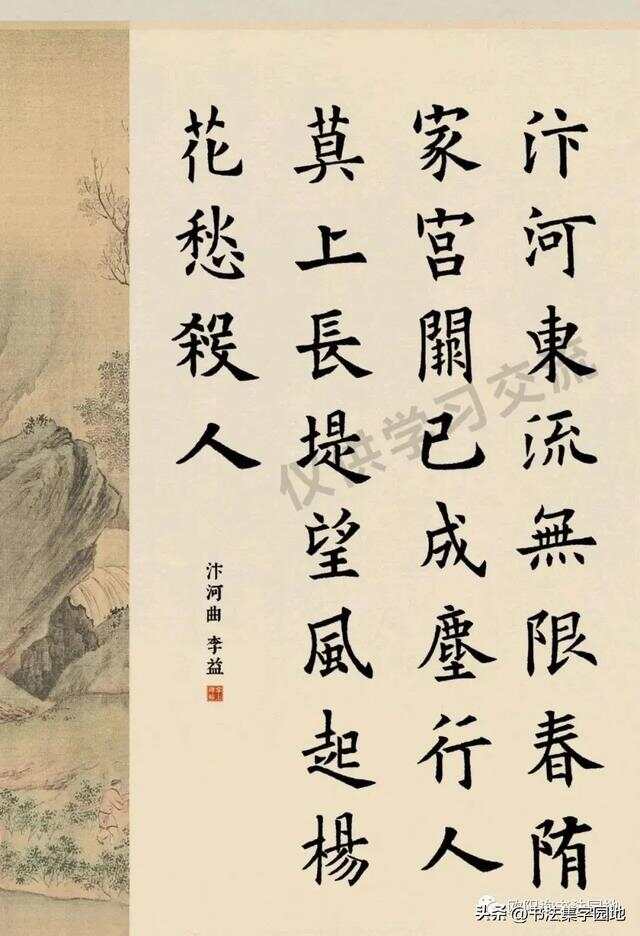 汴河東流無限春陏
家宮闕已成塵行人
莫上長堤望風起楊
花愁殺人
汴河曲 李益
仅供学习交流
头条 @书法集字园地